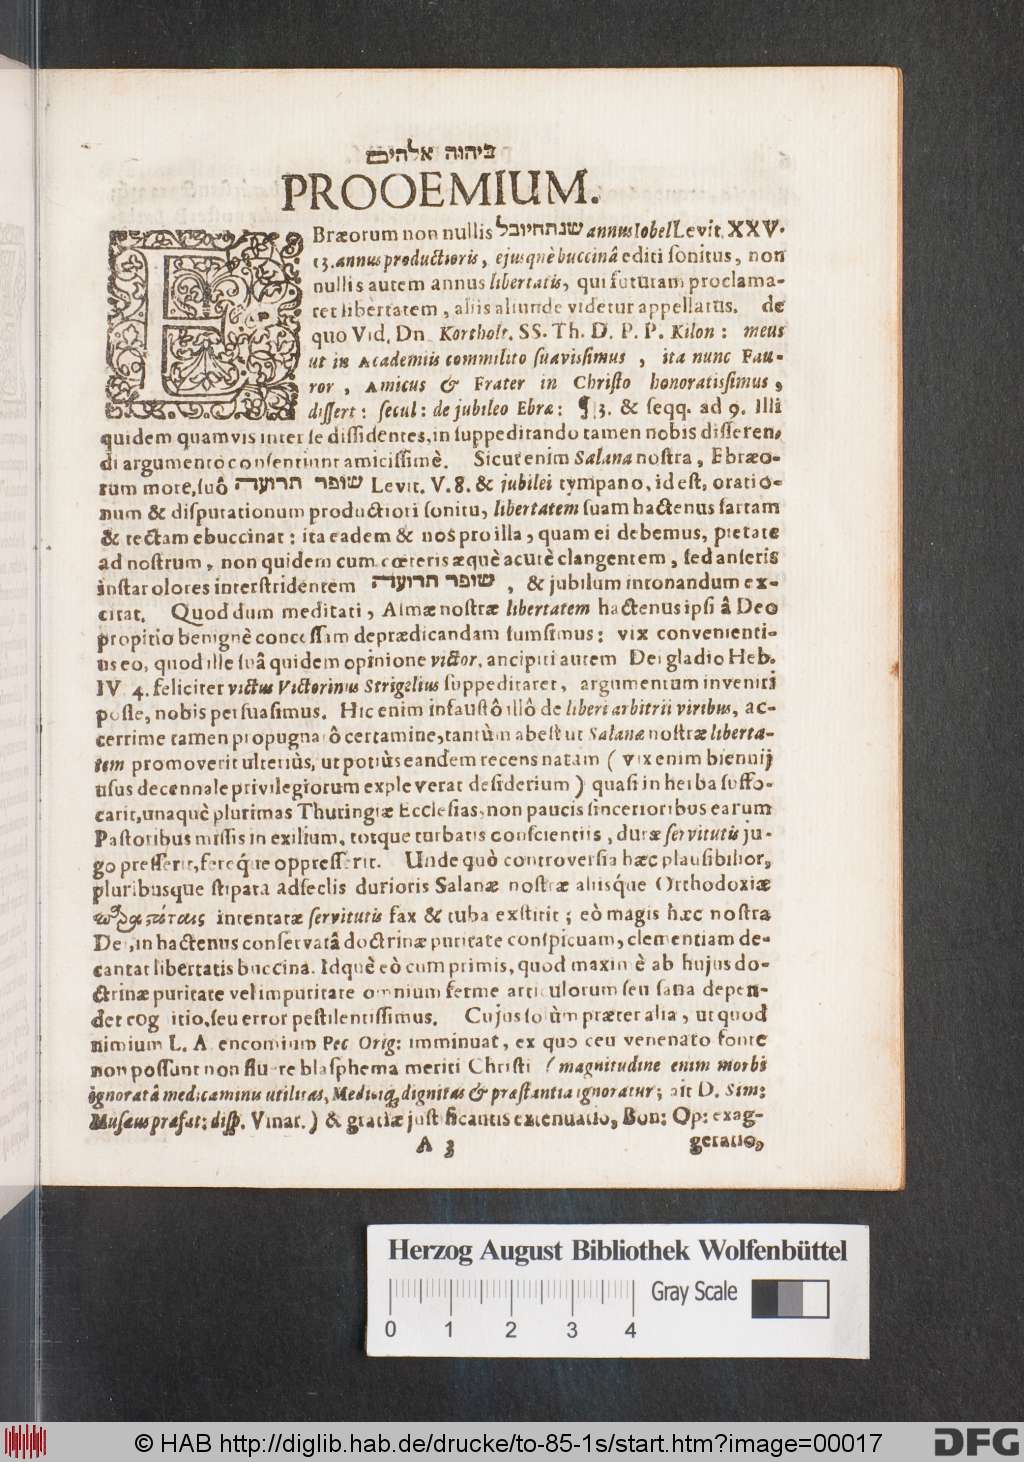 ביהוה אלהים
PROOEMIUM.
EBræorum non nullis שנתחיובל annus Iobel Levit. XXV.
13. annus productioris, ejusquè buccinâ editi ſonitus, non
nullis autem annus libertatis, qui futuram proclama-
ret libertatem, aliis aliunde videtur appellatus. de
quo Vid. Dn. Kortholt. SS. Th. D. P. P. Kilon: meus
ut in Academiis commilito ſuavisſimus, ita nunc Fau-
ror, Amicus & Frater in Chriſto honoratisſimus,
diſſert: ſecul: de jubileo Ebræ: ¶ 3. & ſeqq. ad 9. Illi
quidem quamvis inter ſe diſſidentes, in ſuppeditando tamen nobis diſſeren-
di argumento conſentiunt amiciſſimè. Sicut enim Salana noſtra, Ebræo-
rum more, ſuô שופר תרועה Levit. V. 8. & jubilei tympano, id eſt, oratio-
num & diſputationum productiori ſonitu, libertatem ſuam hactenus ſartam
& tectam ebuccinat: ita eadem & nos pro illa, quam ei debemus, pietate
ad noſtrum, non quidem cum cœteris æquè acutè clangentem, ſed anſeris
inſtar olores interſtridentem שופר תרועה, & jubilum intonandum ex-
citat. Quod dum meditati, Almæ noſtræ libertatem hactenus ipſi â Deo
propitio benignè conceſſam deprædicandam ſumſimus: vix convenienti-
us eo, quod ille ſuâ quidem opinione victor, ancipiti autem Dei gladio Heb.
IV. 4. feliciter victus Victorinus Strigelius ſuppeditaret, argumentum inveniri
poſſe, nobis perſuaſimus. Hic enim infauſtô illô de liberi arbitrii viribus, ac-
cerrime tamen propugnatô certamine, tantùm abeſt ut Salanæ noſtræ liberta-
tem promoverit ulteriùs, ut potiùs eandem recens natam (vix enim biennij
uſus decennale privilegiorum expleverat deſiderium) quaſi in herba ſuffo-
carit, unaquè plurimas Thuringiæ Eccleſias, non paucis ſincerioribus earum
Paſtoribus miſſis in exilium, totque turbatis conſcientiis, duræ ſervitutis ju-
go preſſerit, ferèq́ue oppreſſerit. Unde quò controverſia hæc plauſibilior,
pluribusque ſtipata adſeclis durioris Salanæ noſtræ aliisq́ue Orthodoxiæ
intentatæ ſervitutis fax & tuba exſtitit; eò magis hæc noſtra
Dei, in hactenus conſervatâ doctrinæ puritate conſpicuam, clementiam de-
cantat libertatis buccina. Idquè eò cum primis, quod maximè ab hujus do-
ctrinæ puritate vel impuritate omnium ferme articulorum ſeu ſana depen-
det cognitio, ſeu error peſtilentiſſimus. Cujus ſolùm præter alia, ut quod
nimium L. A. encomium Pec. Orig: imminuat, ex quo ceu venenato fonte
non poſſunt non fluere blaſphema meriti Chriſti (magnitudine enim morbi
ignoratâ medicaminū utilitas, Mediciq; dignitas & præſtantia ignoratur; ait D. Sim:
Muſæus præfat: diſp. Vinar.) & gratiæ juſtificantis extenuatio, Bon: Op: exag-
A 3
geratio,
Herzog August Bibliothek Wolfenbüttel
Gray Scale
0 1 2 3 4
© HAB http://diglib.hab.de/drucke/to-85-1s/start.htm?image=00017
DFG